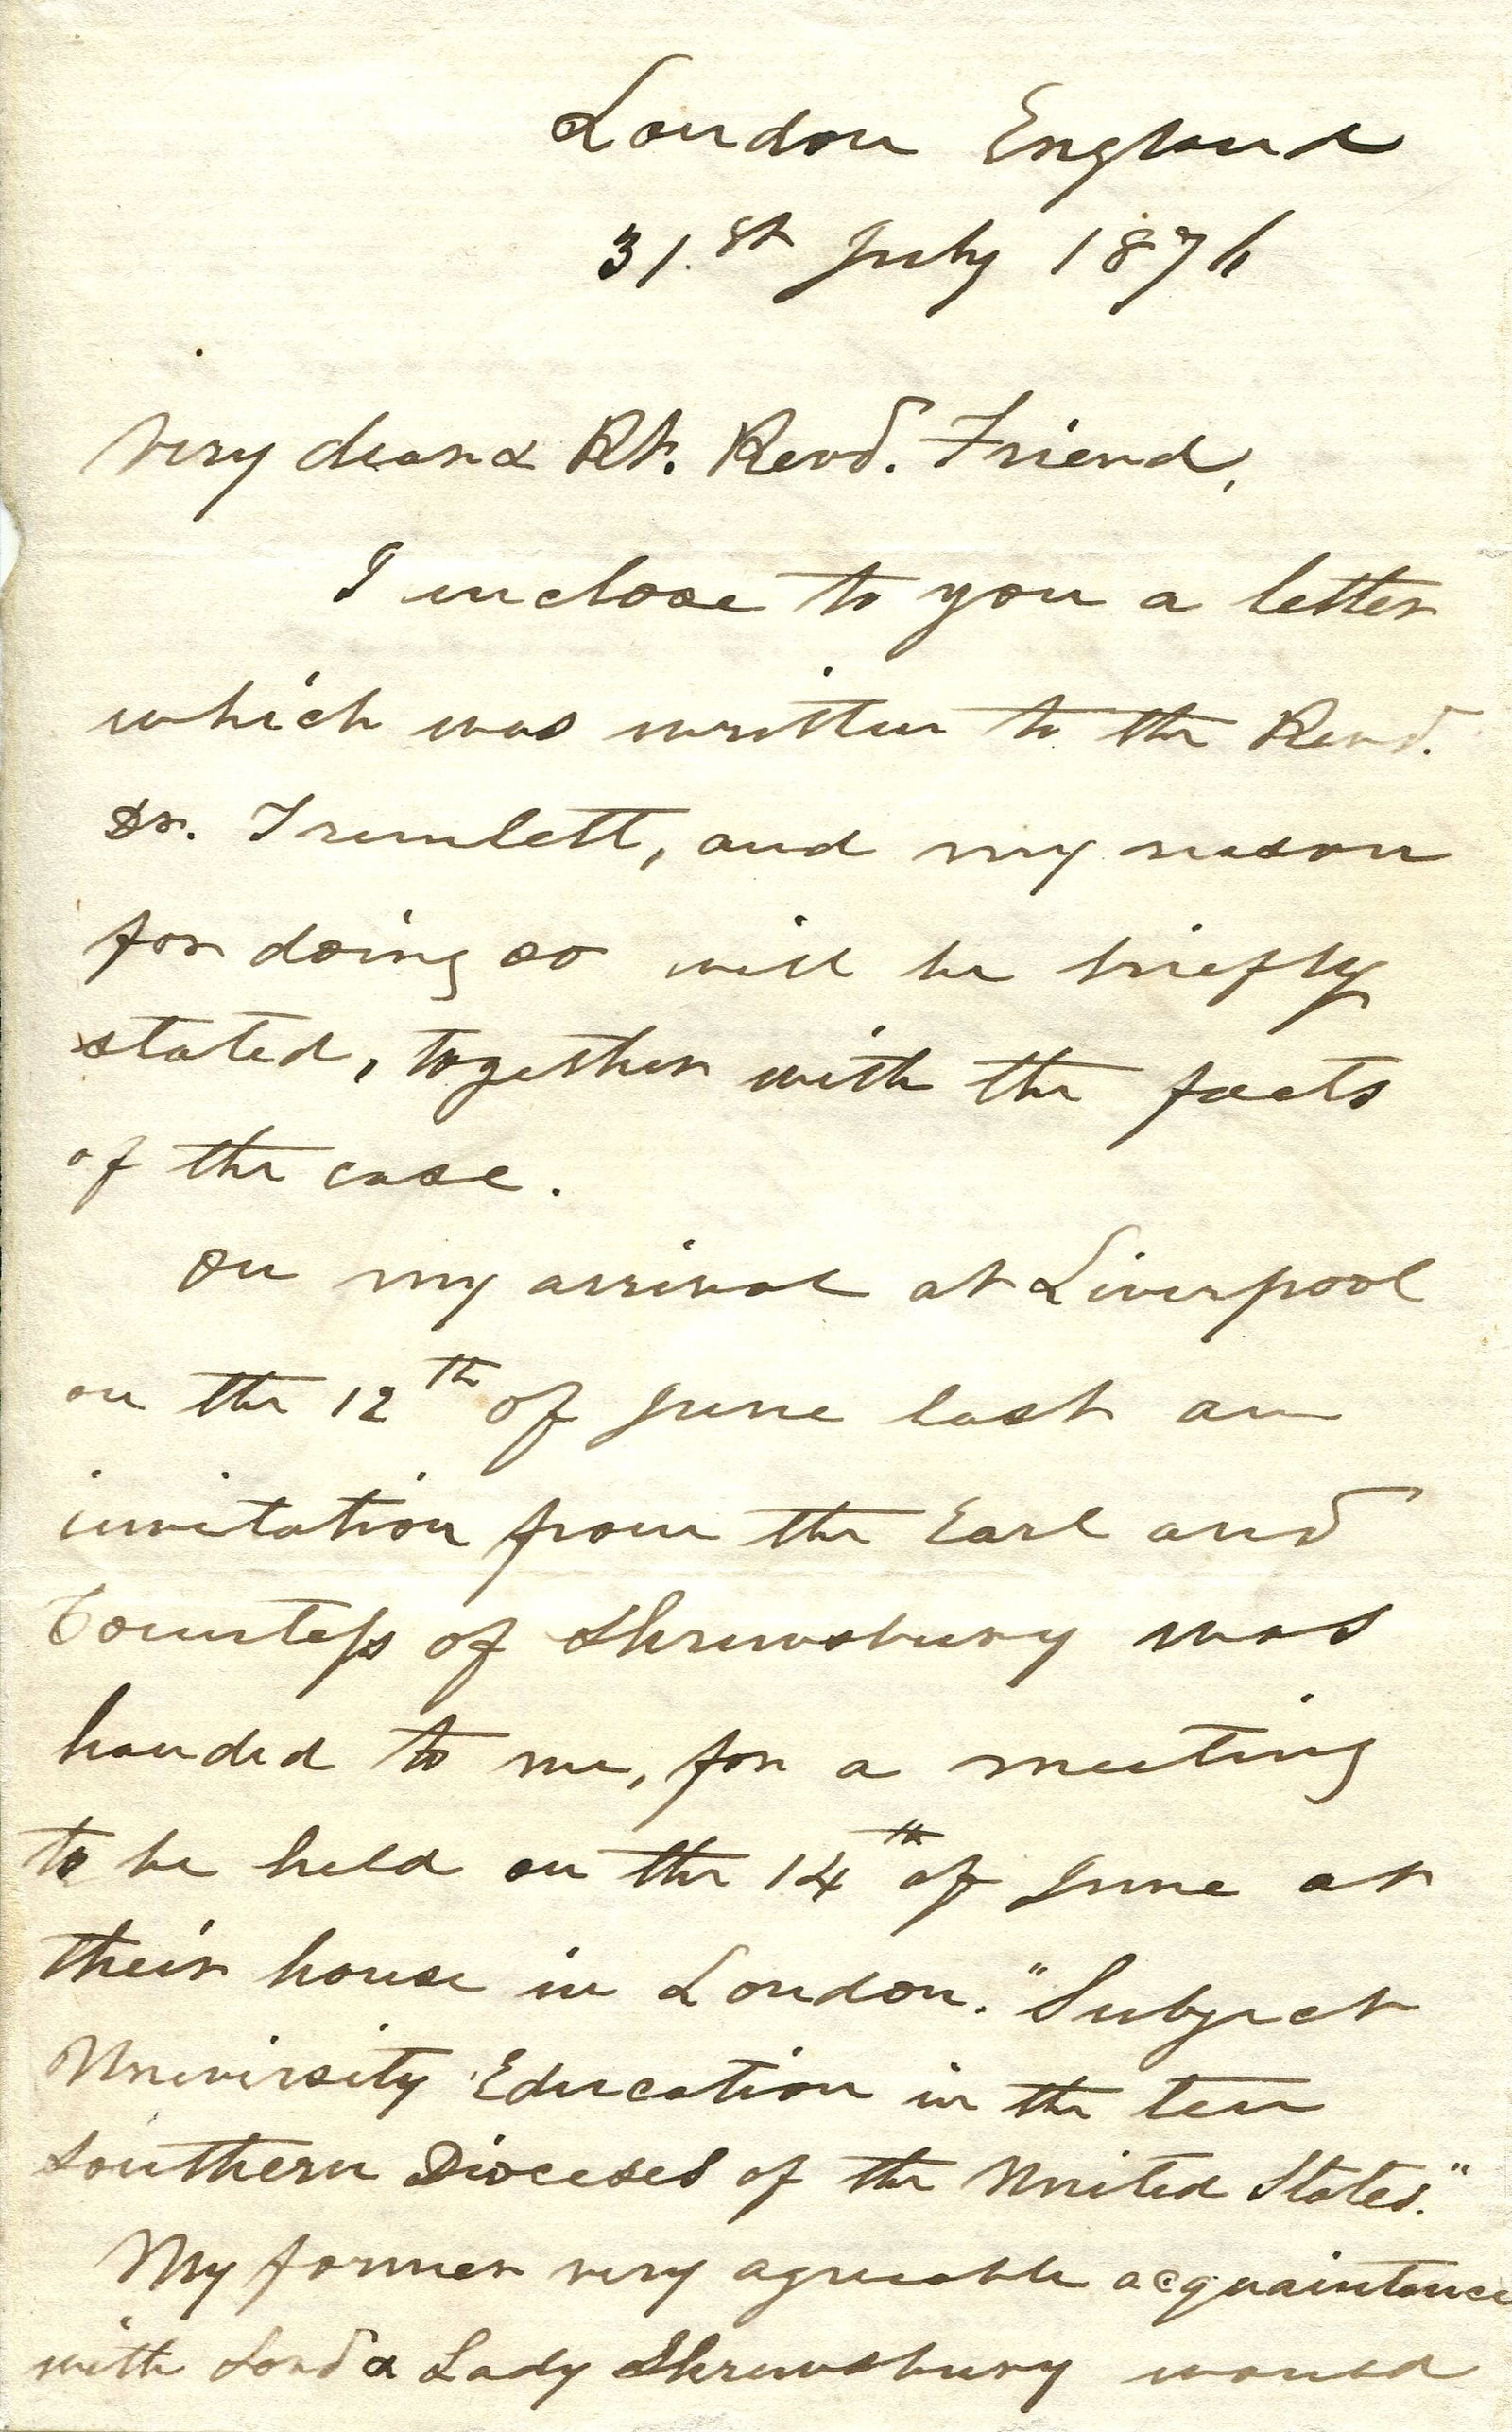 London England
31.st July 1876
Very dear & Rt. Revd. Friend,
I inclose to you a letter
which was written to the Revd.
Dr. Tremlett, and my reason
for doing so will be briefly
stated, together with the facts
of the case.
On my arrival at Liverpool
on the 12th of June last an
invitation from the Earl and
Countess of Shrewsbury was
handed to me, for a meeting
to be held on the 14th of June at
their house in London. "Subject
University Education in the ten
Southern Dioceses of the United States."
My former very agreeable acquaintance
with Lord & Lady Shrewsbury would